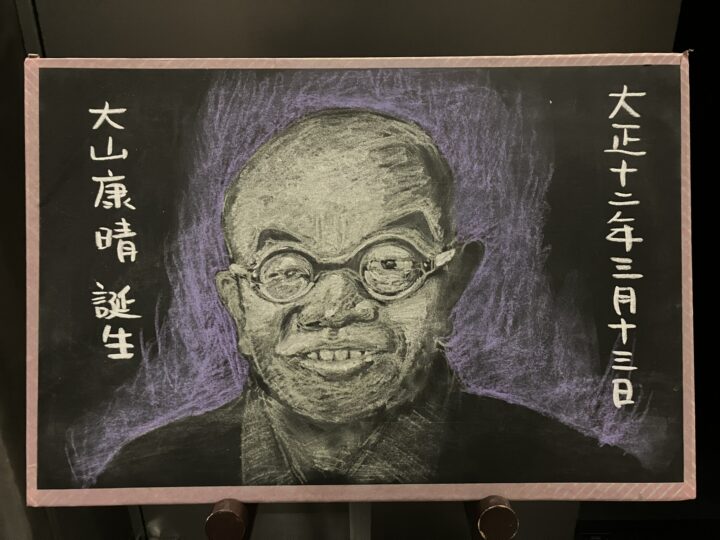 大正十二年三月十三日
大山康晴 誕生